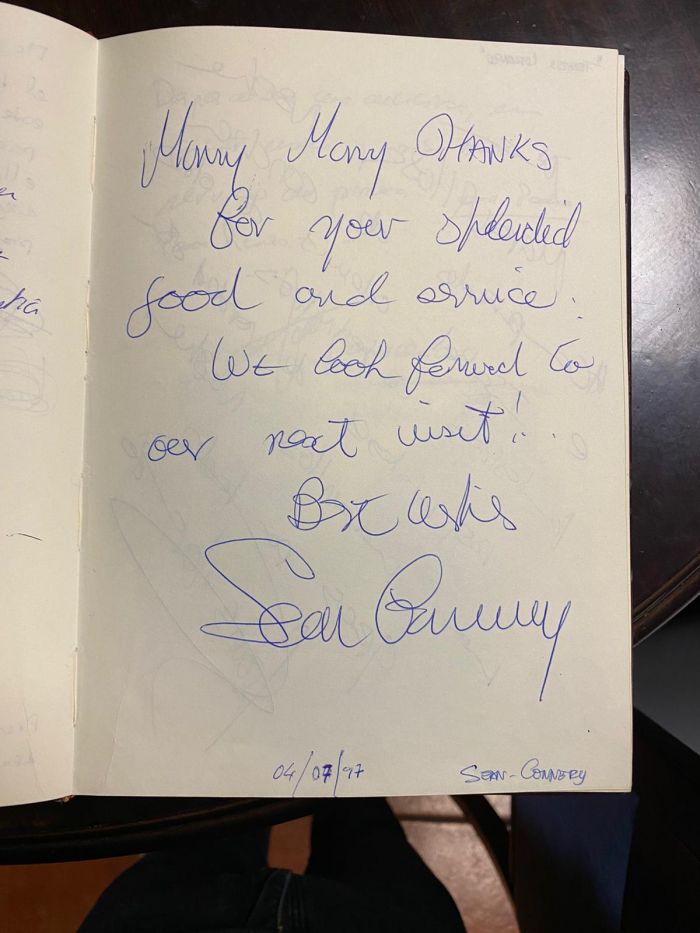 Many Many THANKS
for your splendid
food and service.
We look forward to
our next visit!..
Best wishes
Sean Connery
04/07/97
SEAN-CONNERY